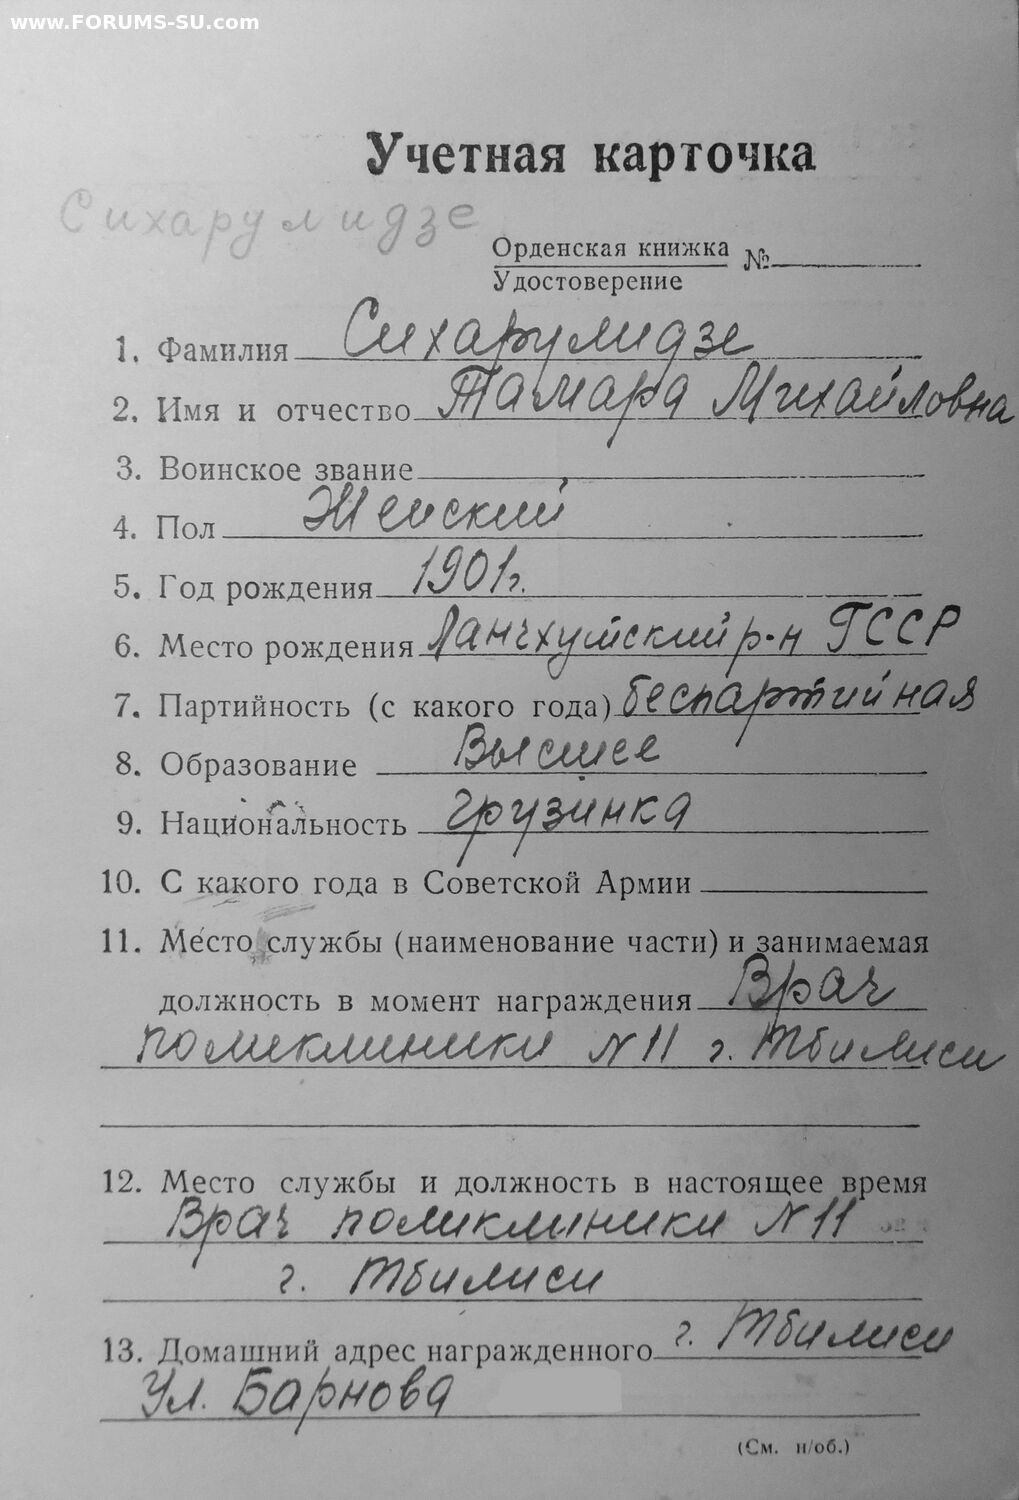 www.FORUMS-SU.com
Учетная карточка
Сихарулидзе
Орденская книжка
Удостоверение №
1. Фамилия Сихарулидзе
2. Имя и отчество Тамара Михайловна
3. Воинское звание
4. Пол Женский
5. Год рождения 1901г.
6. Место рождения Ланчхутский р-н ГССР
7. Партийность (с какого года) беспартийная
8. Образование Высшее
9. Национальность грузинка
10. С какого года в Советской Армии
11. Место службы (наименование части) и занимаемая
должность в момент награждения Врач
поликлиники N 11 г. Тбилиси
12. Место службы и должность в настоящее время
Врач поликлиники N 11
г. Тбилиси
13. Домашний адрес награжденного г. Тбилиси
Ул. Барнова
(См. н/об.)